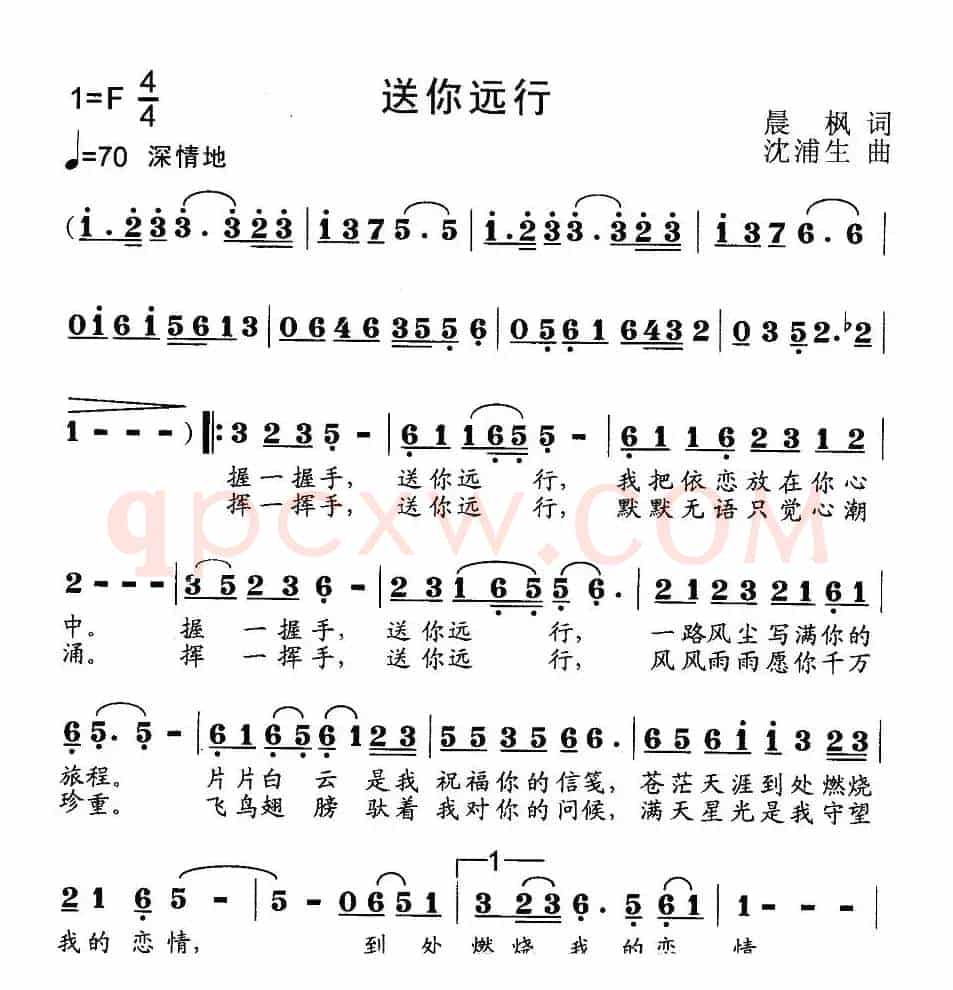 1=F 4/4 送你远行
晨 枫 词
♩=70 深情地
沈浦生 曲
(i . 2 3 3 . 3 2 3 | i 3 7 5 . 5 | i . 2 3 3 . 3 2 3 | i 3 7 6 . 6 |
0 i 6 i 5 6 1 3 | 0 6 4 6 3 5 5 6 | 0 5 6 1 6 4 3 2 | 0 3 5 2 . ♭2 |
1 - - - ) ‖: 3 2 3 5 - | 6 1 1 6 5 5 - | 6 1 1 6 2 3 1 2 |
握一握手， 送你远 行， 我把依恋放在你心
挥一挥手， 送你远 行， 默默无语只觉心潮
qpcxw.COM
2 - - - | 3 5 2 3 6 - | 2 3 1 6 5 5 6 . | 2 1 2 3 2 1 6 1 |
中。 握 一握手， 送你远 行， 一路风尘写满你的
涌。 挥 一挥手， 送你远 行， 风风雨雨愿你千万
6 5 . 5 - | 6 1 6 5 6 1 2 3 | 5 5 3 5 6 6 . | 6 5 6 i i 3 2 3 |
旅程。 片片白 云 是我 祝福你的信笺， 苍茫天涯到处燃烧
珍重。 飞鸟翅 膀 驮着 我对你的问候， 满天星光是我守望
1
2 1 6 5 - | 5 - 0 6 5 1 | 3 2 3 6 . 5 6 1 | 1 - - - |
我的 恋情， 到 处燃烧 我 的恋 情